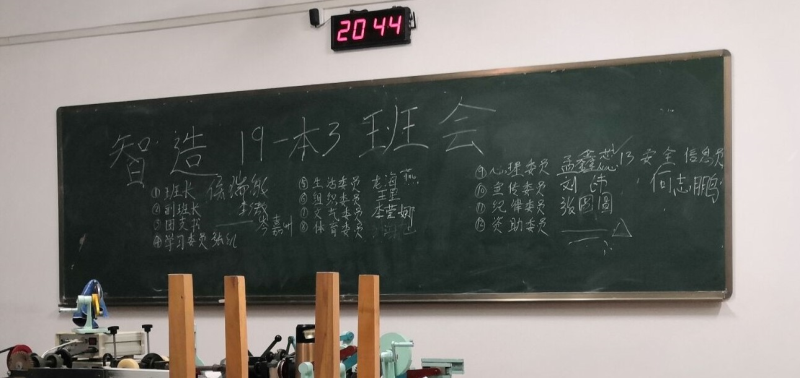 20 44
智造19-本3班会
①班长
②副班长
③团支书 岑嘉洲
④学习委员
⑤生活委员 龙海燕
⑥组织委员
⑦文艺委员 李莹娜
⑧体育委员
⑨心理委员 孟鑫蕊
⑩宣传委员 刘
⑪纪律委员 张圆圆
⑫资助委员
⑬安全信息员
何志鹏